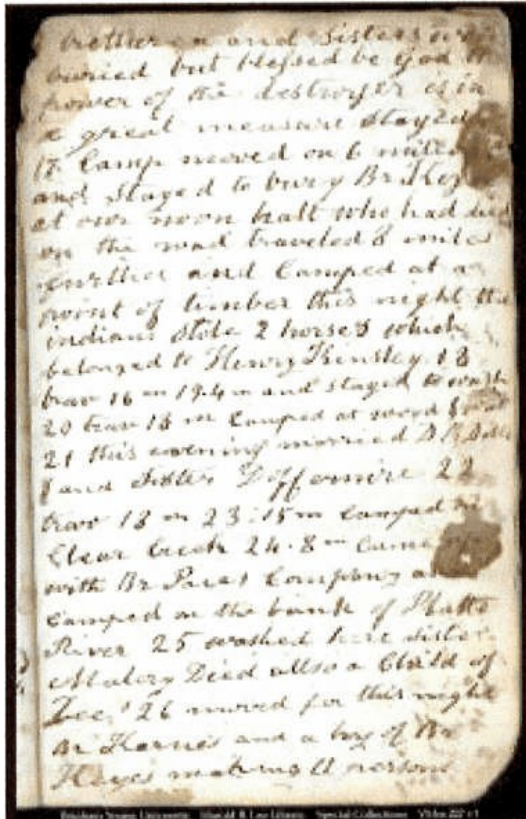 bretheren and Sisters were
buried but blessed be God the
power of the destroyer is in
a great measure stayed
17 Camp moved on 6 miles
and Stayed to bury Br
at our noon halt who had died
on the road traveled 8 miles
further and Camped at a
point of timber this night the
indians stole 2 horses which
belonged to Henry Kinsley 18
trav 16 m 19.4 m and stayed to wash
20 trav 18 m Camped at wood
21 this evening married
and Sister 22
trav 18 m 23.15 m camped
Clear Creek 24.8 m Came
with Br Company and
Camped on the bank of Platte
River 25 washed here sister
Malery Died allso a Child of
26 moved for this night
Br and a boy of Br
Hayes making 11 persons
Brigham Young University Harold B. Lee Library Special Collections